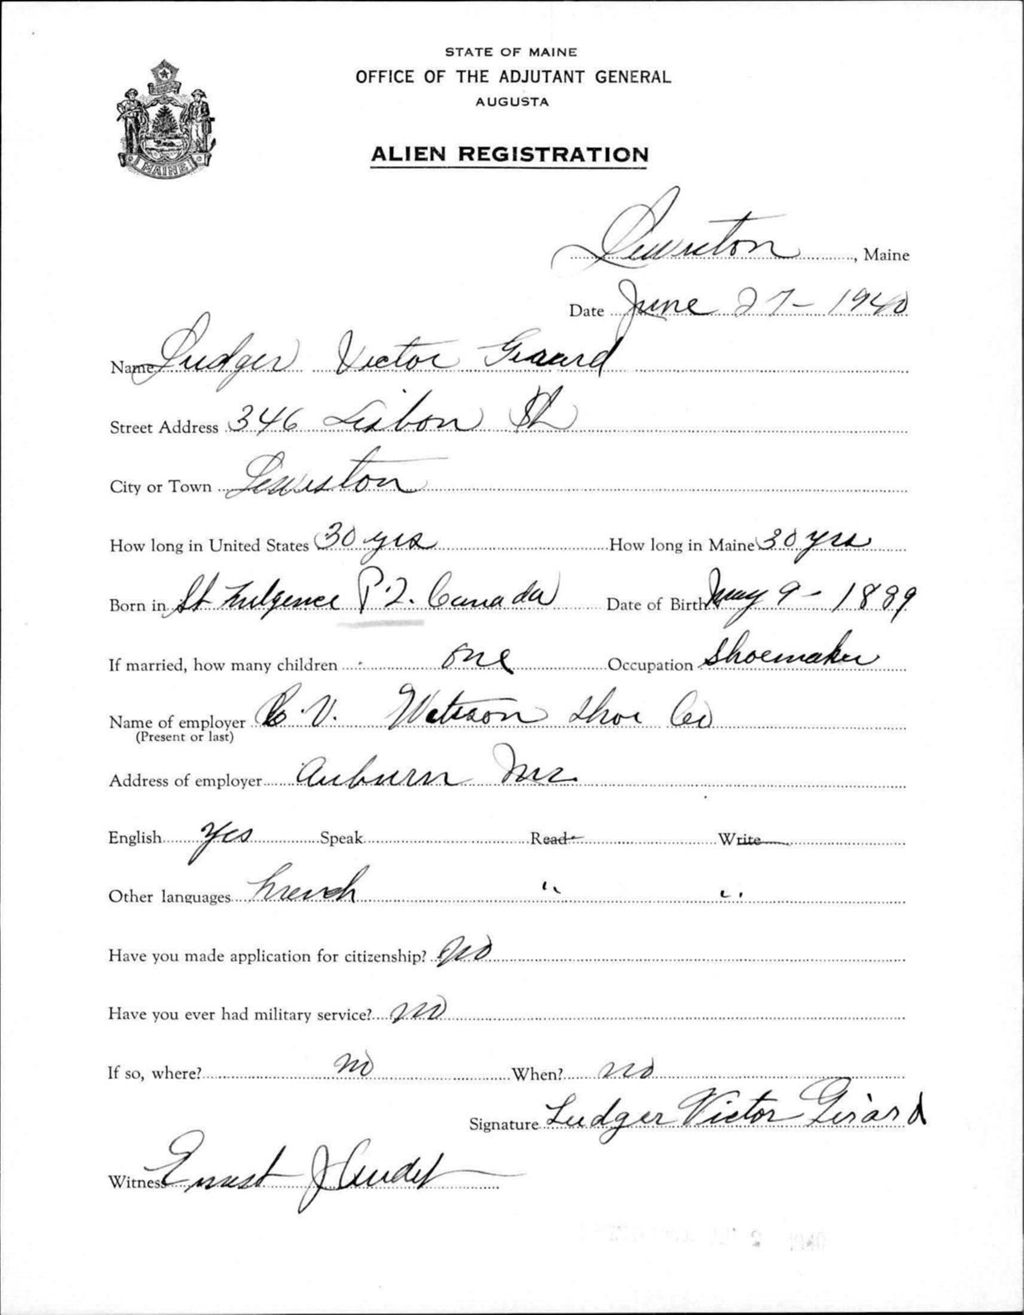 STATE OF MAINE
OFFICE OF THE ADJUTANT GENERAL
AUGUSTA
ALIEN REGISTRATION
MAINE
Lewiston, Maine
Date June 27 - 1940
Name Ludger Victor Girard
Street Address 346 Lisbon St
City or Town Lewiston
How long in United States 30 yrs How long in Maine 30 yrs
Born in St Fulgence P.Q. Canada Date of Birth May 9 - 1889
If married, how many children one Occupation Shoemaker
Name of employer V. Watson Shoe Co
(Present or last)
Address of employer Auburn Me
English Yes Speak Read Write
Other languages French " "
Have you made application for citizenship? No
Have you ever had military service? No
If so, where? no When? no
Signature Ludger Victor Girard
Witness Ernest J Audet